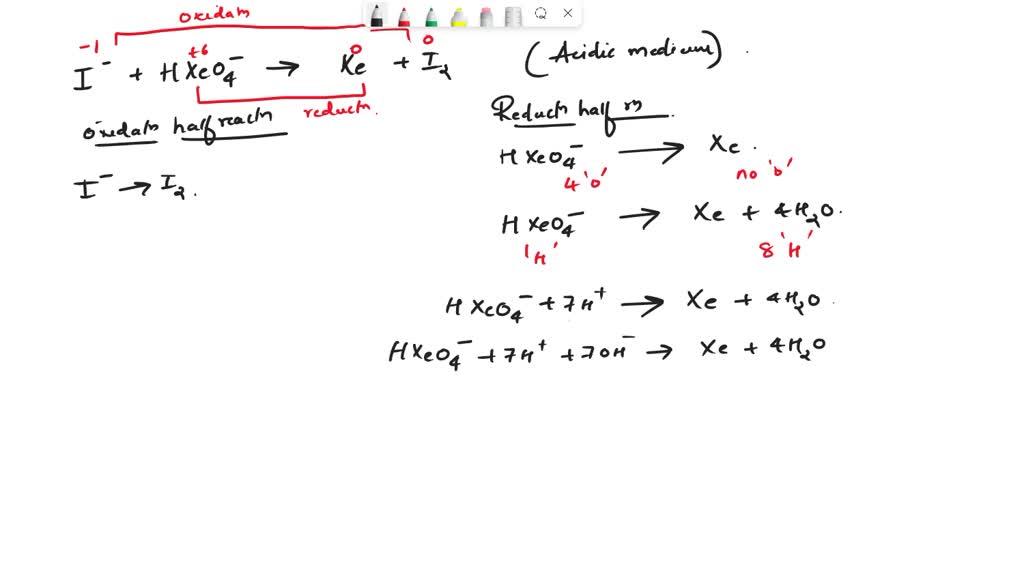 oxidatn
-1 +6 0 0
I⁻ + HXeO₄⁻ → Xe + I₂
reductn.
oxidatn half reactn
I⁻ → I₂.
(Acidic medium).
Reductn half rn.
HXeO₄⁻ → Xe.
4 'O' no 'O'
HXeO₄⁻ → Xe + 4H₂O.
1 'H' 8 'H'
HXeO₄⁻ + 7H⁺ → Xe + 4H₂O.
HXeO₄⁻ + 7H⁺ + 7OH⁻ → Xe + 4H₂O